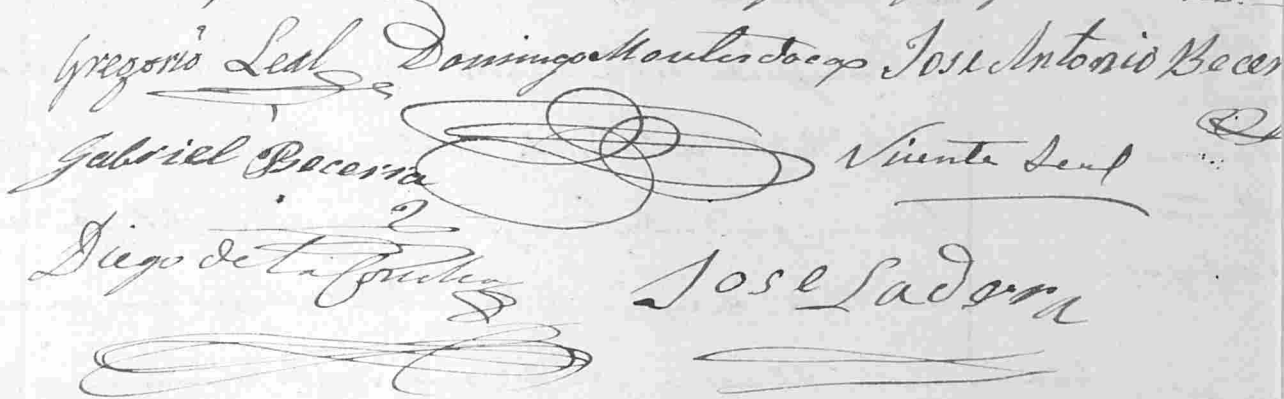 Gregorio Leal Domingo Montesdoca Jose Antonio Becer
Gabriel Becerra Visente Leal
Diego de la
Jose Ladera